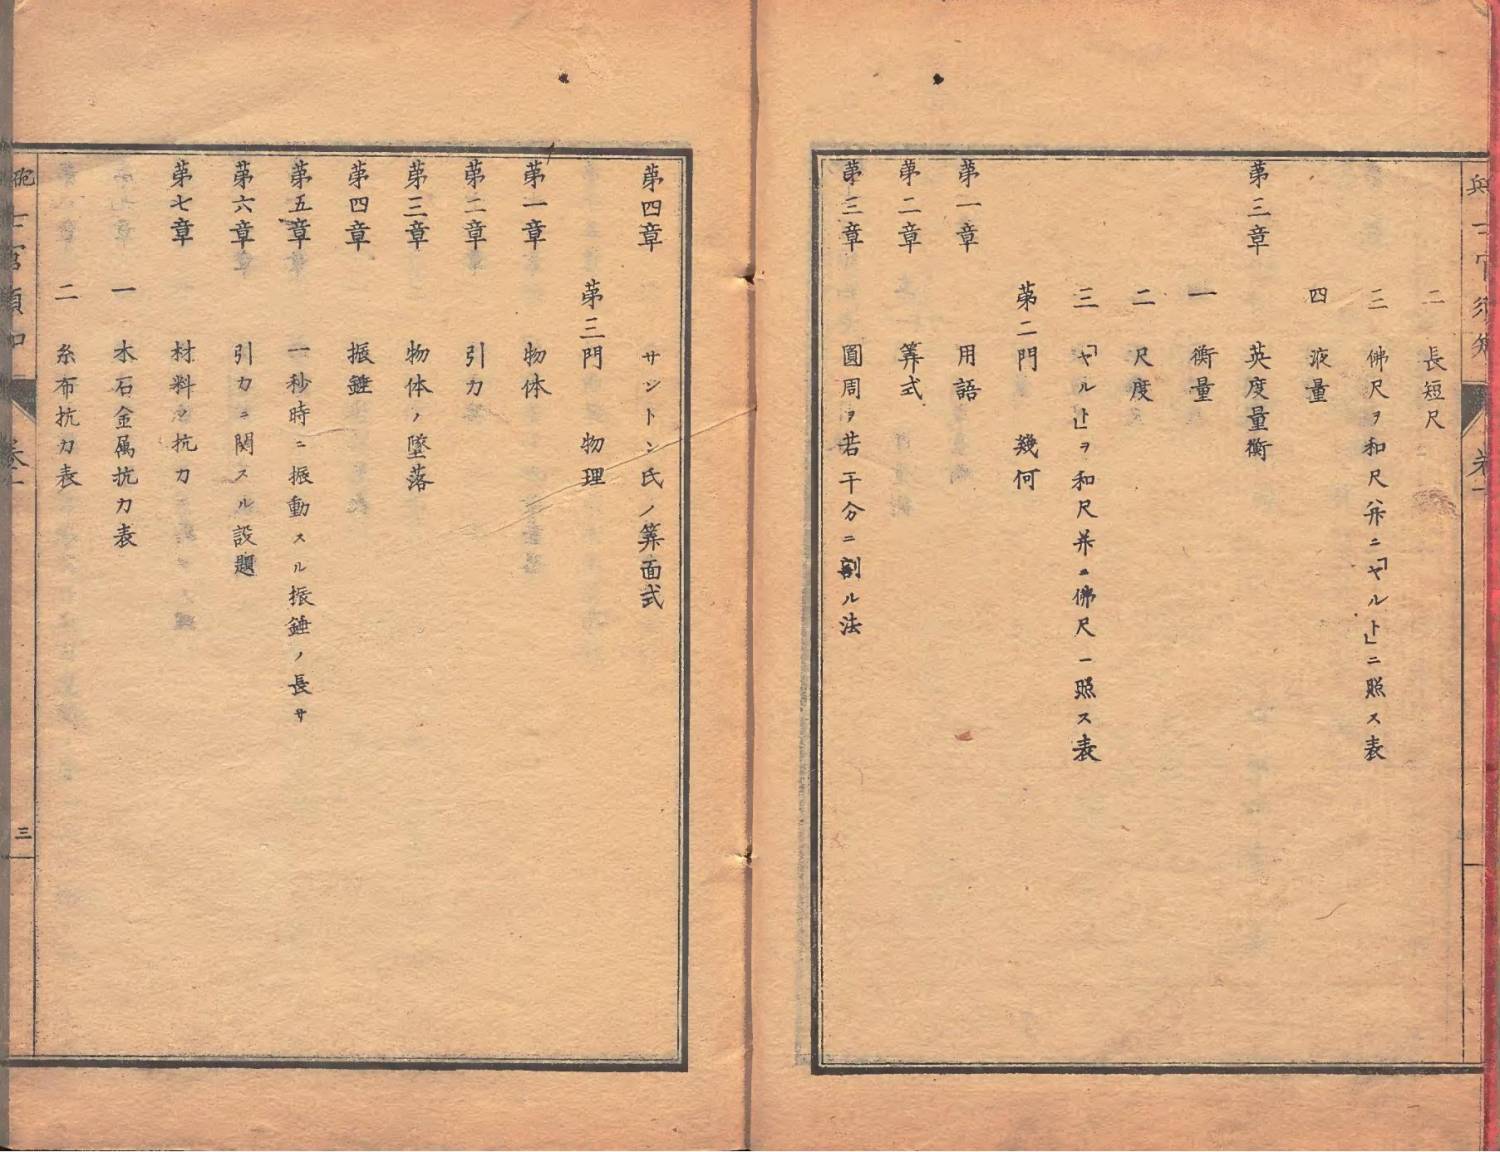 二 長短尺
三 佛尺ヲ和尺幷ニ「ヤルト」ニ照ス表
四 液量
第三章 英度量衡
一 衡量
二 尺度
三 「ヤルト」ヲ和尺幷ニ佛尺ニ照ス表
第二門 幾何
第一章 用語
第二章 筭式
第三章 圓周ヲ若干分ニ割ル法
第四章 サントン氏ノ筭面式
第三門 物理
第一章 物体
第二章 引力
第三章 物体ノ墜落
第四章 振錘
第五章 一秒時ニ振動スル振錘ノ長サ
第六章 引力ニ関スル設題
第七章 材料ノ抗力
一 木石金属抗力表
二 糸布抗力表
三